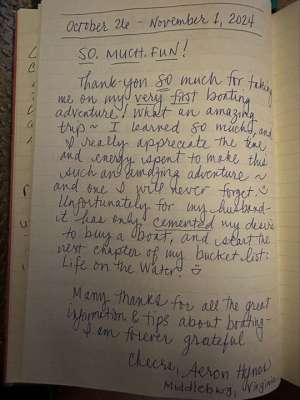 October 26 - November 1, 2024
SO. MUCH. FUN!
Thank you so much for taking
me on my very first boating
adventure! What an amazing
trip ~ I learned so much, and
I really appreciate the time
and energy spent to make this
such an amazing adventure ~
and one I will never forget. ☺
Unfortunately for my husband -
it has only cemented my desire
to buy a boat, and start the
next chapter of my bucket list:
Life on the Water ~ ☺
Many thanks for all the great
information & tips about boating -
I am forever grateful
Cheers, Aeron
Middleburg, Virginia